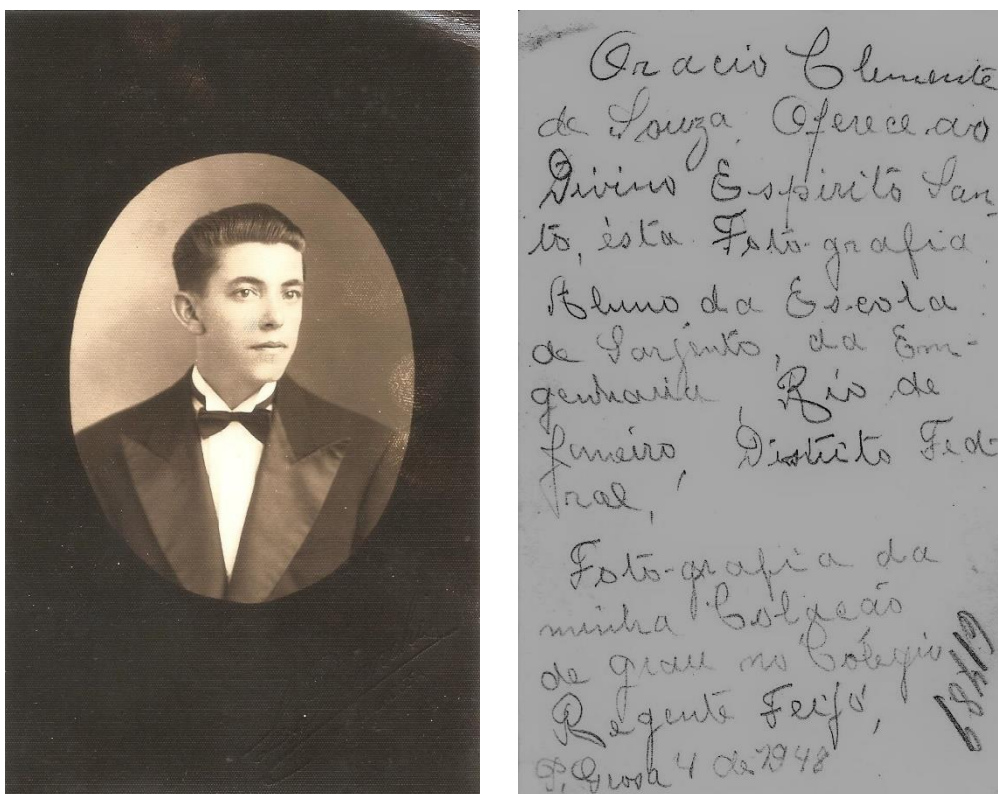 Oracio Clemente
de Souza, Oferece ao
Divino Espirito San-
to, ésta Foto-grafia
Aluno da Escola
de Sarjento, da Em-
genharia, Rio de
Janeiro, Districto Fed-
ral,
Foto-grafia da
minha Colação
de grau no Colegio
Regente Feijó,
P. Grosa 4 de 1948